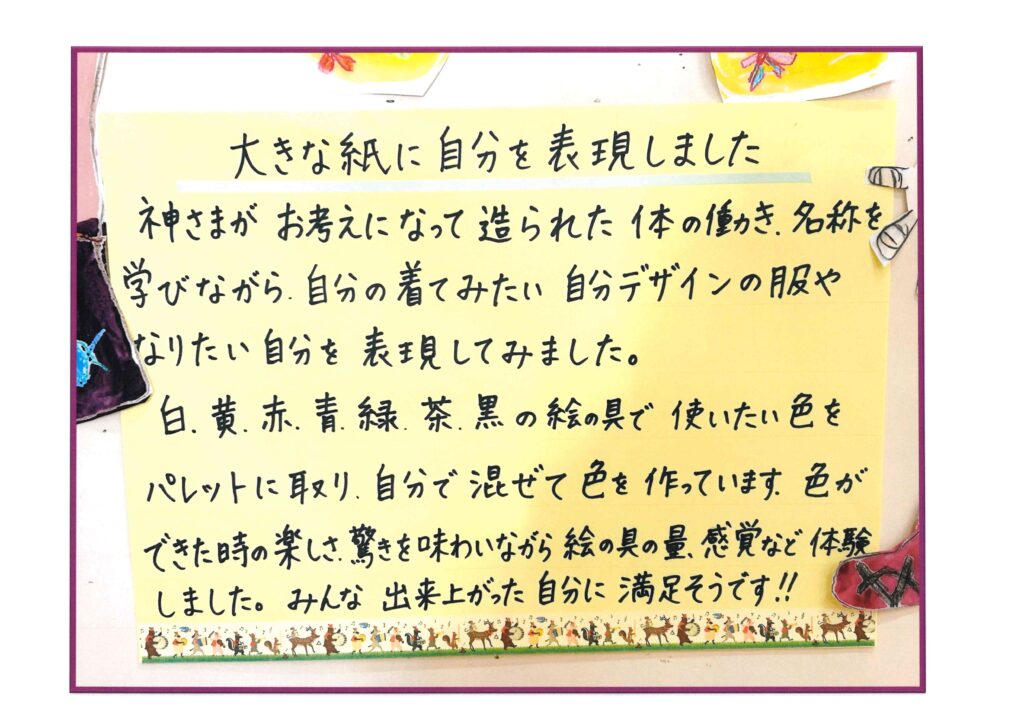 大きな紙に自分を表現しました
神さまが お考えになって 造られた 体の働き、名称を
学びながら、自分の着てみたい 自分デザインの服や
なりたい自分を 表現してみました。
白、黄、赤、青、緑、茶、黒の絵の具で 使いたい色を
パレットに取り、自分で混ぜて色を作っています。色が
できた時の楽しさ、驚きを味わいながら絵の具の量、感覚など体験
しました。みんな 出来上がった自分に 満足そうです!!